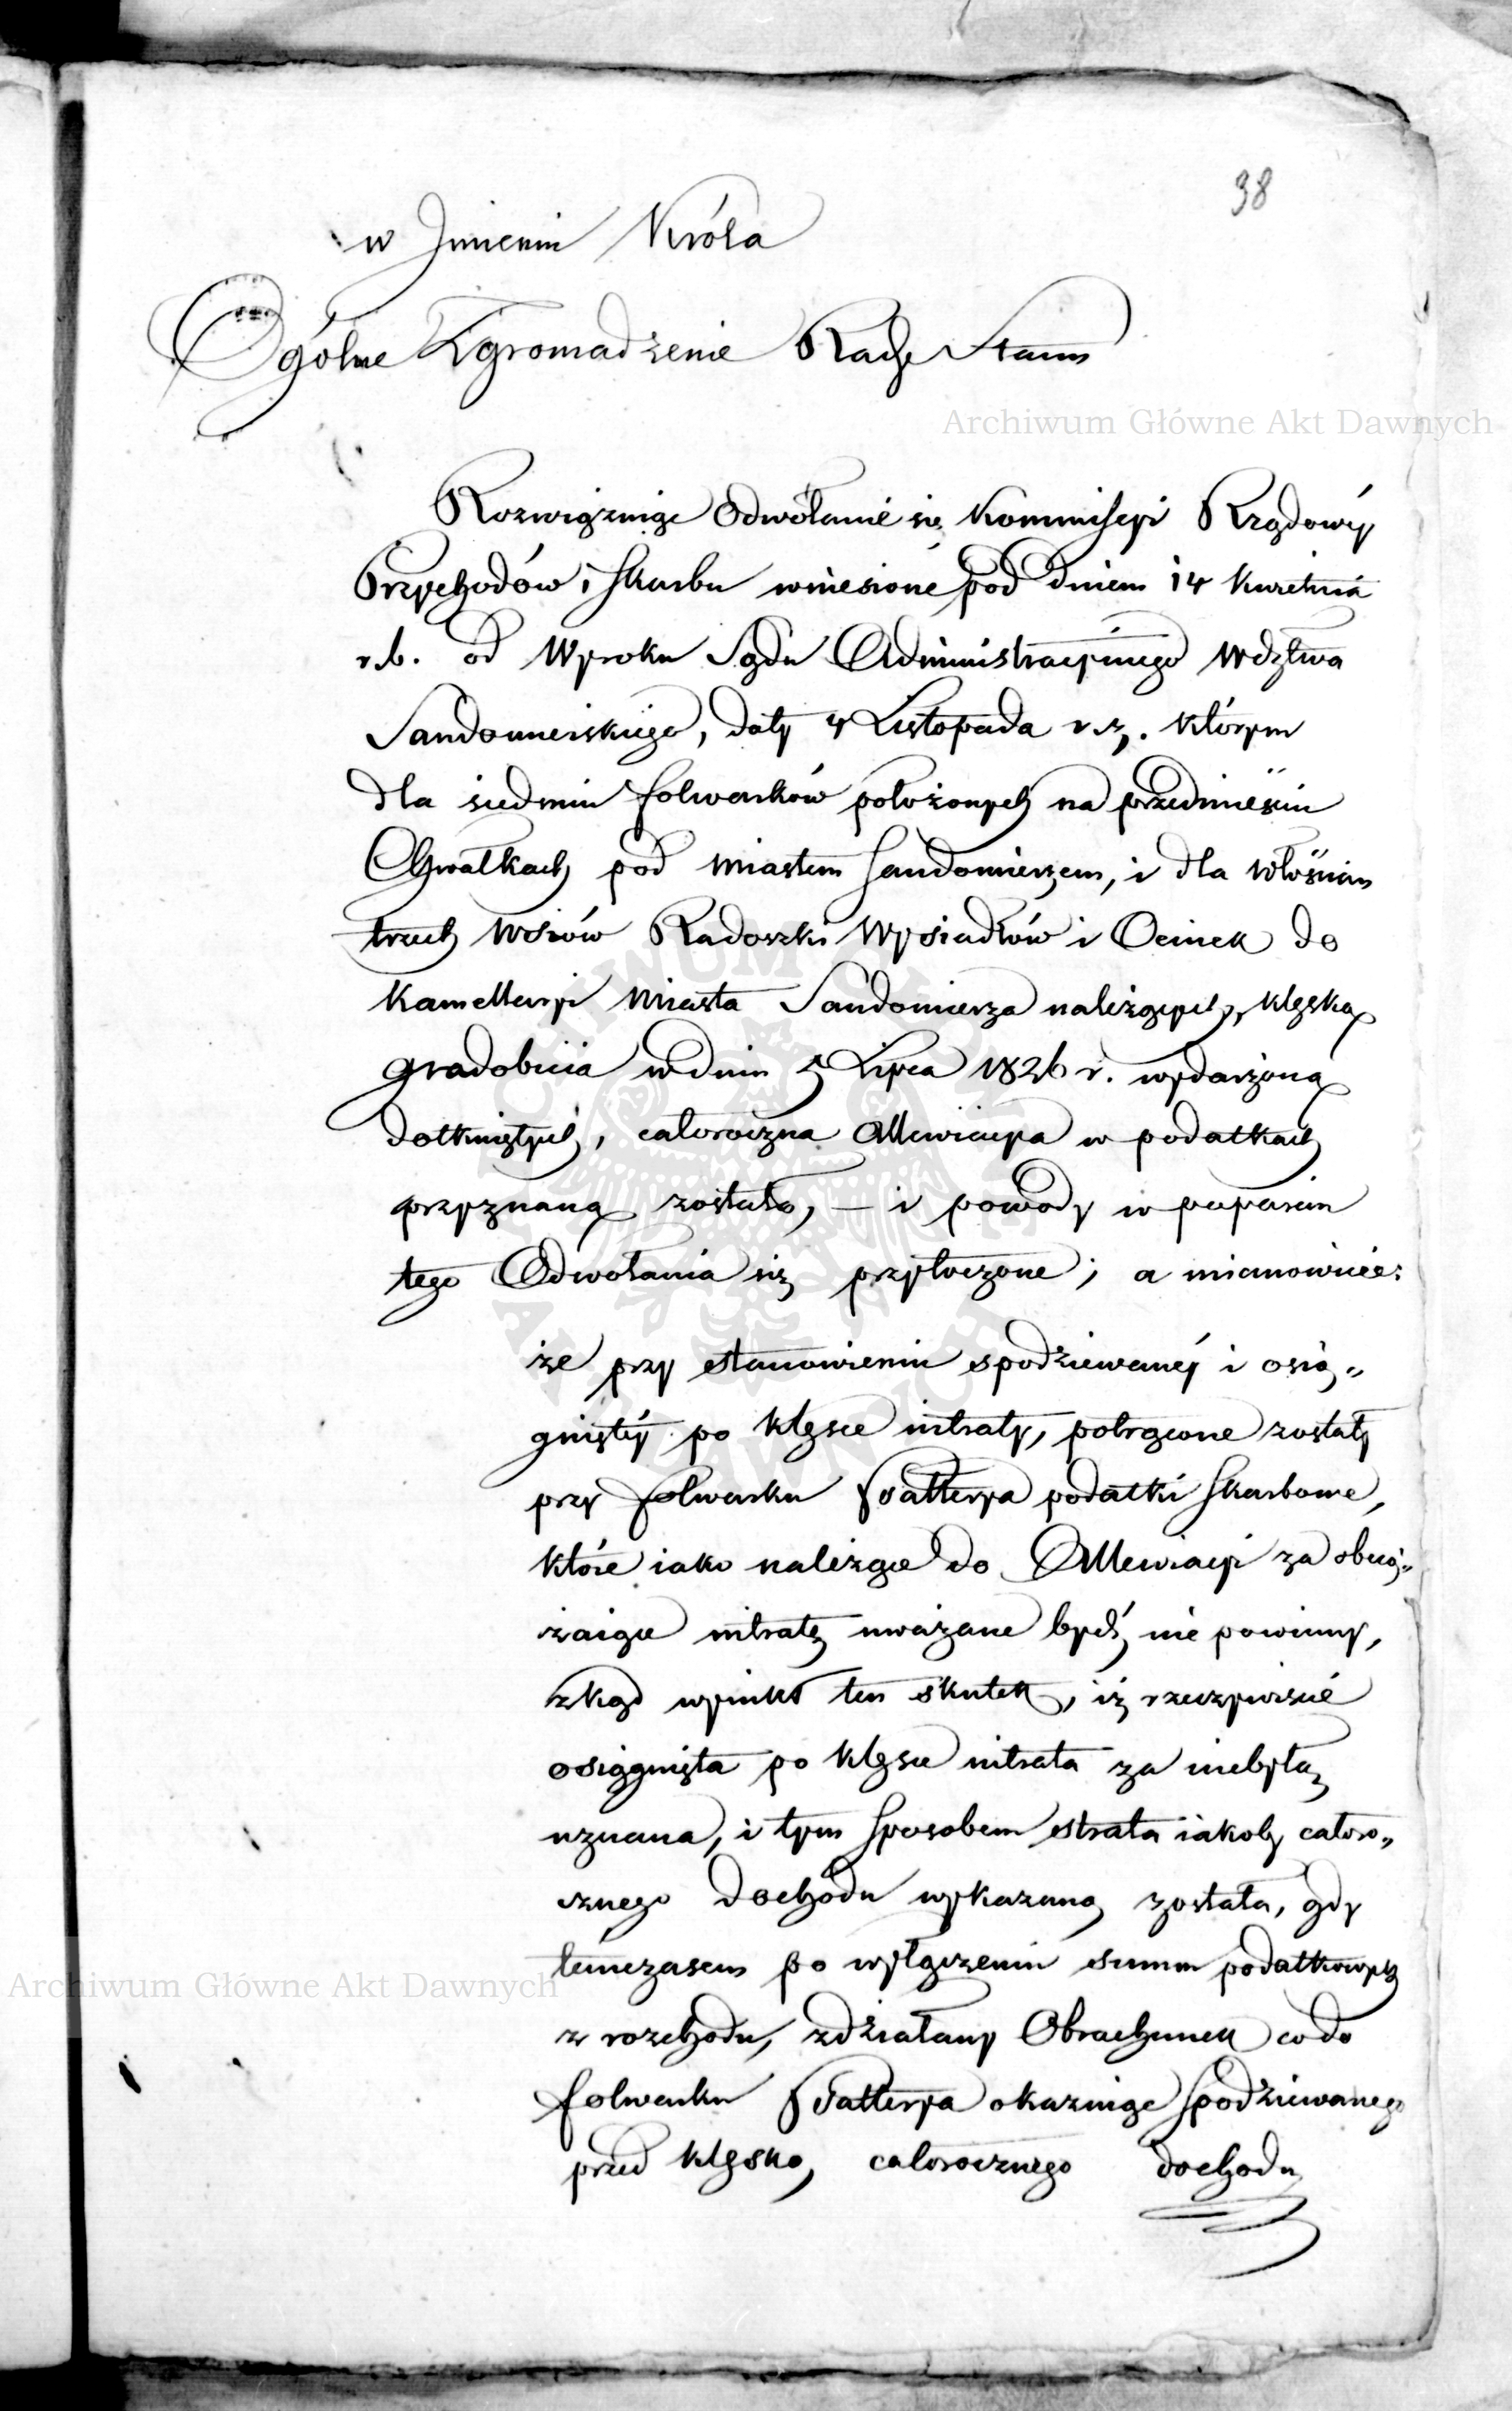 38
w Jmieniu Króla
Ogólne Zgromadzenie Rady Stanu
Archiwum Główne Akt Dawnych
Rozwiązuiąc Odwołanie się Kommissyi Rządowéy
Przychodów i Skarbu wniesione pod dniem 14 Kwietnia
r.b. od Wyroku Sądu Administracyinego Wdztwa
Sandomierskiego, daty 4 Listopada r.z. którym
dla siedmiu folwarków położonych na przedmieściu
Chwałkach pod miastem Sandomierzem, i dla włościan
trzech wsiów Radoszki Wysiadłów i Ocinek do
Kamellaryi Miasta Sandomierza należących, klęską
gradobicia w dniu 5 Lipca 1826 r. wydarzoną
dotkniętych, całoroczna Allewiacya w podatkach
przyznaną została, – i powody w poparciu
tego Odwołania się przytoczone; a mianowicie:
że przy stanowieniu spodziewanéy i osią„
gniętéy po klęsce intraty, potrącone zostały
przy folwarku podatki Skarbowe,
które iako należące do Allewiacyi za obcią„
żaiące intratę uważane bydź nie powinny,
zkąd wynikł ten skutek, iż rzeczywiście
osiągnięta po klęsce intrata za niebyłą
uznana, i tym sposobem strata iakoby całoro„
cznego dochodu wykazaną została, gdy
tymczasem po wyłączeniu summ podatkowych
z rozchodu, zdziałany Obrachunek co do
folwarku okazuiąc spodziewanego
przed klęską całorocznego dochodu
Archiwum Główne Akt Dawnych